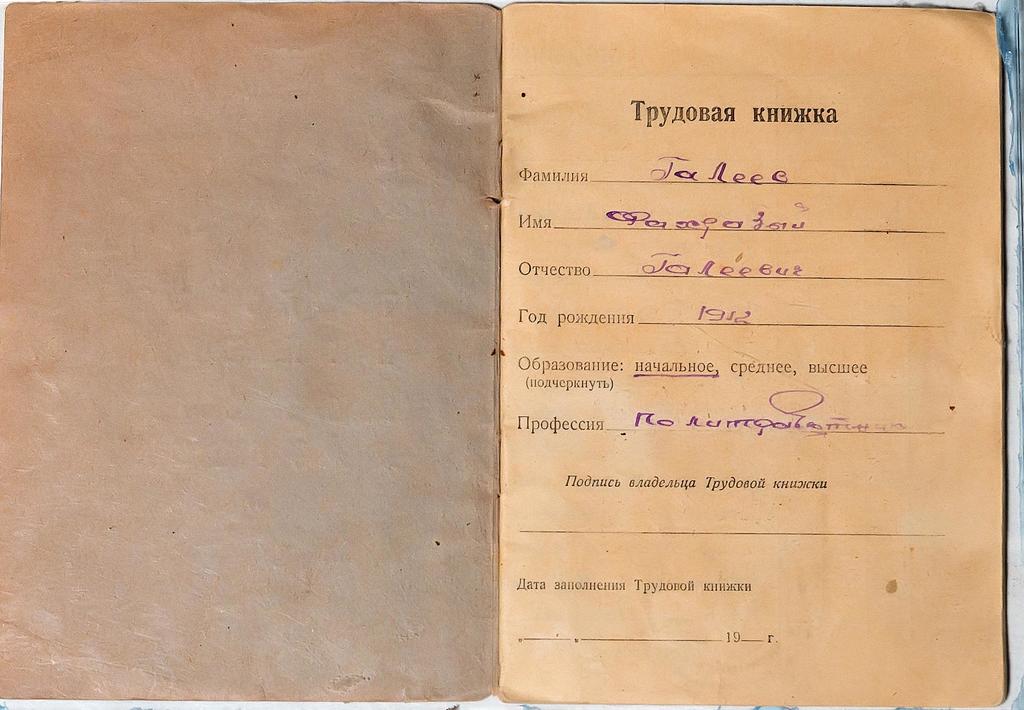 Трудовая книжка
Фамилия Галеев
Имя Фахразый
Отчество Галеевич
Год рождения 1912
Образование: начальное, среднее, высшее
(подчеркнуть)
Профессия Политработник
Подпись владельца Трудовой книжки
Дата заполнения Трудовой книжки
„ “ 19 г.